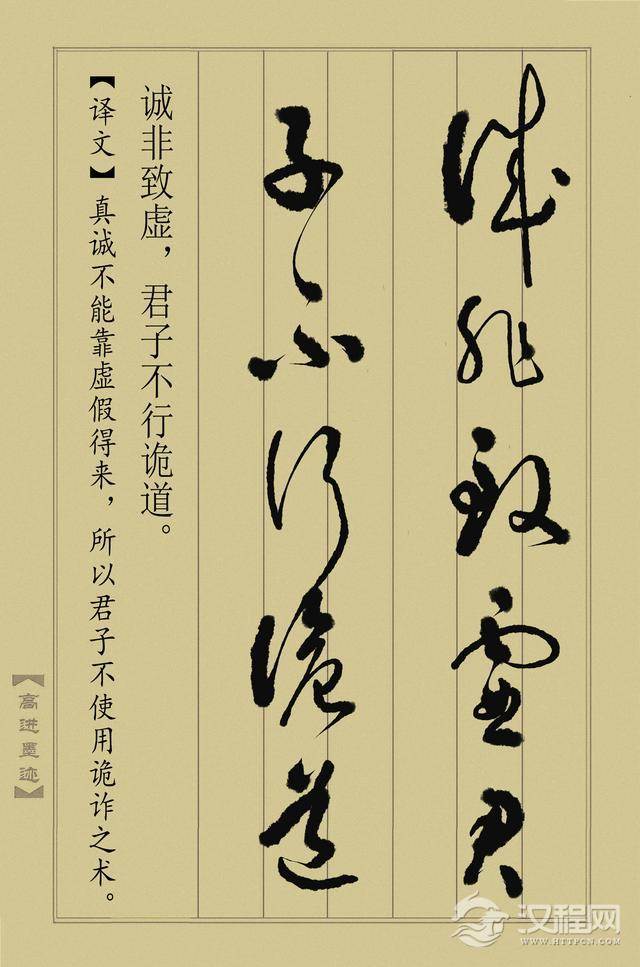 诚非致虚君
子不行诡道
诚非致虚，君子不行诡道。
【译文】真诚不能靠虚假得来，所以君子不使用诡诈之术。
【高进墨迹】
汉程网
WWW.HTTPCN.COM